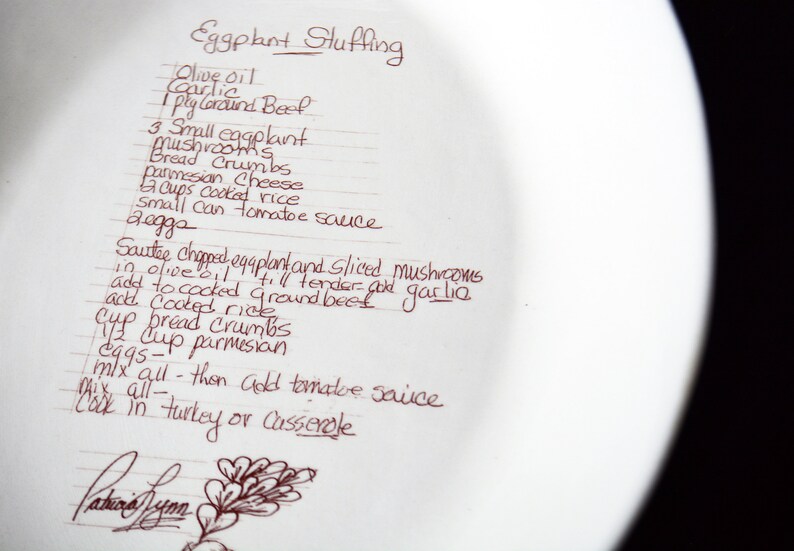 Eggplant Stuffing
Olive oil
Garlic
1 pkg Ground Beef
3 Small eggplant
mushrooms
Bread Crumbs
parmesian Cheese
2 cups cooked rice
small can tomatoe sauce
2 eggs
Sautee chopped eggplant and sliced mushrooms
in olive oil till tender add garlic
add to cooked ground beef
add cooked rice
cup bread crumbs
1/2 cup parmesian
eggs -
mix all - then add tomatoe sauce
mix all -
Cook in turkey or casserole
Patricia Lynn